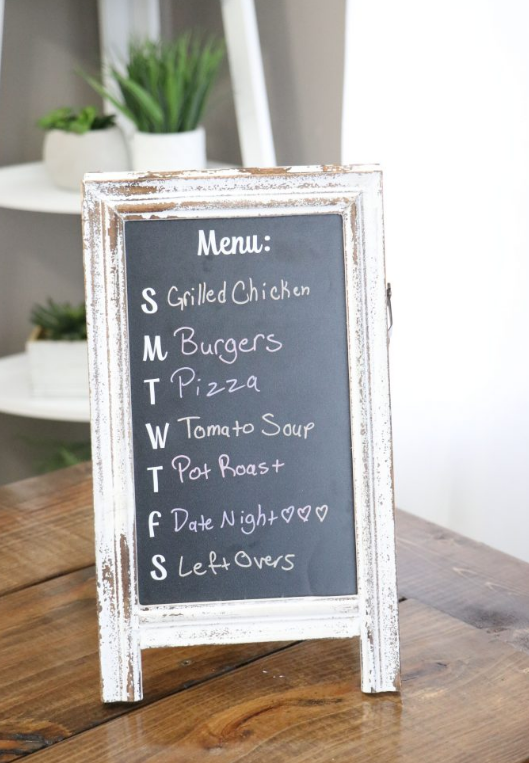 Menu:
S Grilled Chicken
M Burgers
T Pizza
W Tomato Soup
T Pot Roast
F Date Night♡♡♡
S Left Overs